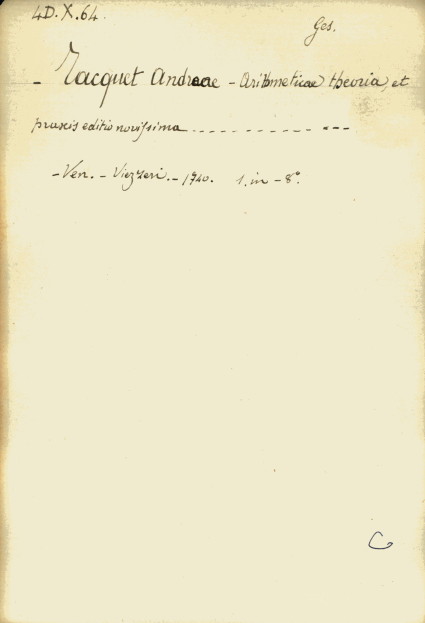 4D.X.64.
Ges.
- Tacquet Andreae - Arithmeticae theoria, et
praxis editio novissima
- Ven. - Viezzeri. - 1740. 1. in - 8°.
C